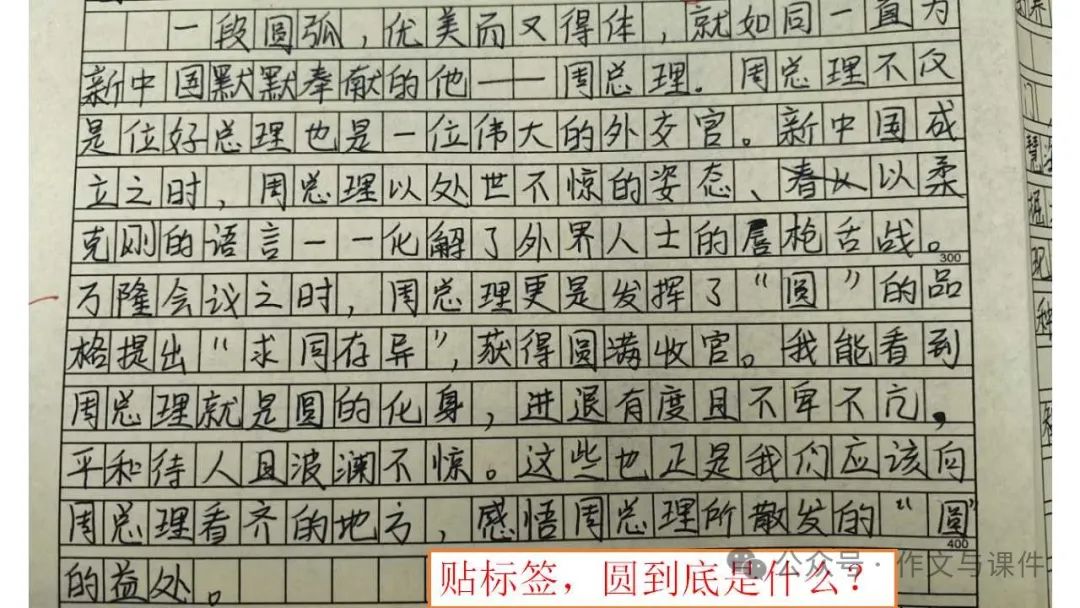 一段圆弧，优美而又得体，就如同一直为
新中国默默奉献的他——周总理．周总理不仅
是位好总理也是一位伟大的外交官。新中国成
立之时，周总理以处世不惊的姿态、春以以柔
克刚的语言一一化解了外界人士的唇枪舌战。
300
万隆会议之时，周总理更是发挥了“圆”的品
格提出“求同存异”，获得圆满收官。我能看到
周总理就是圆的化身，进退有度且不卑不亢，
平和待人且波澜不惊。这些也正是我们应该向
周总理看齐的地方，感悟周总理所散发的“圆”
400
的益处。
贴标签，圆到底是什么？
公众号·作文与课件